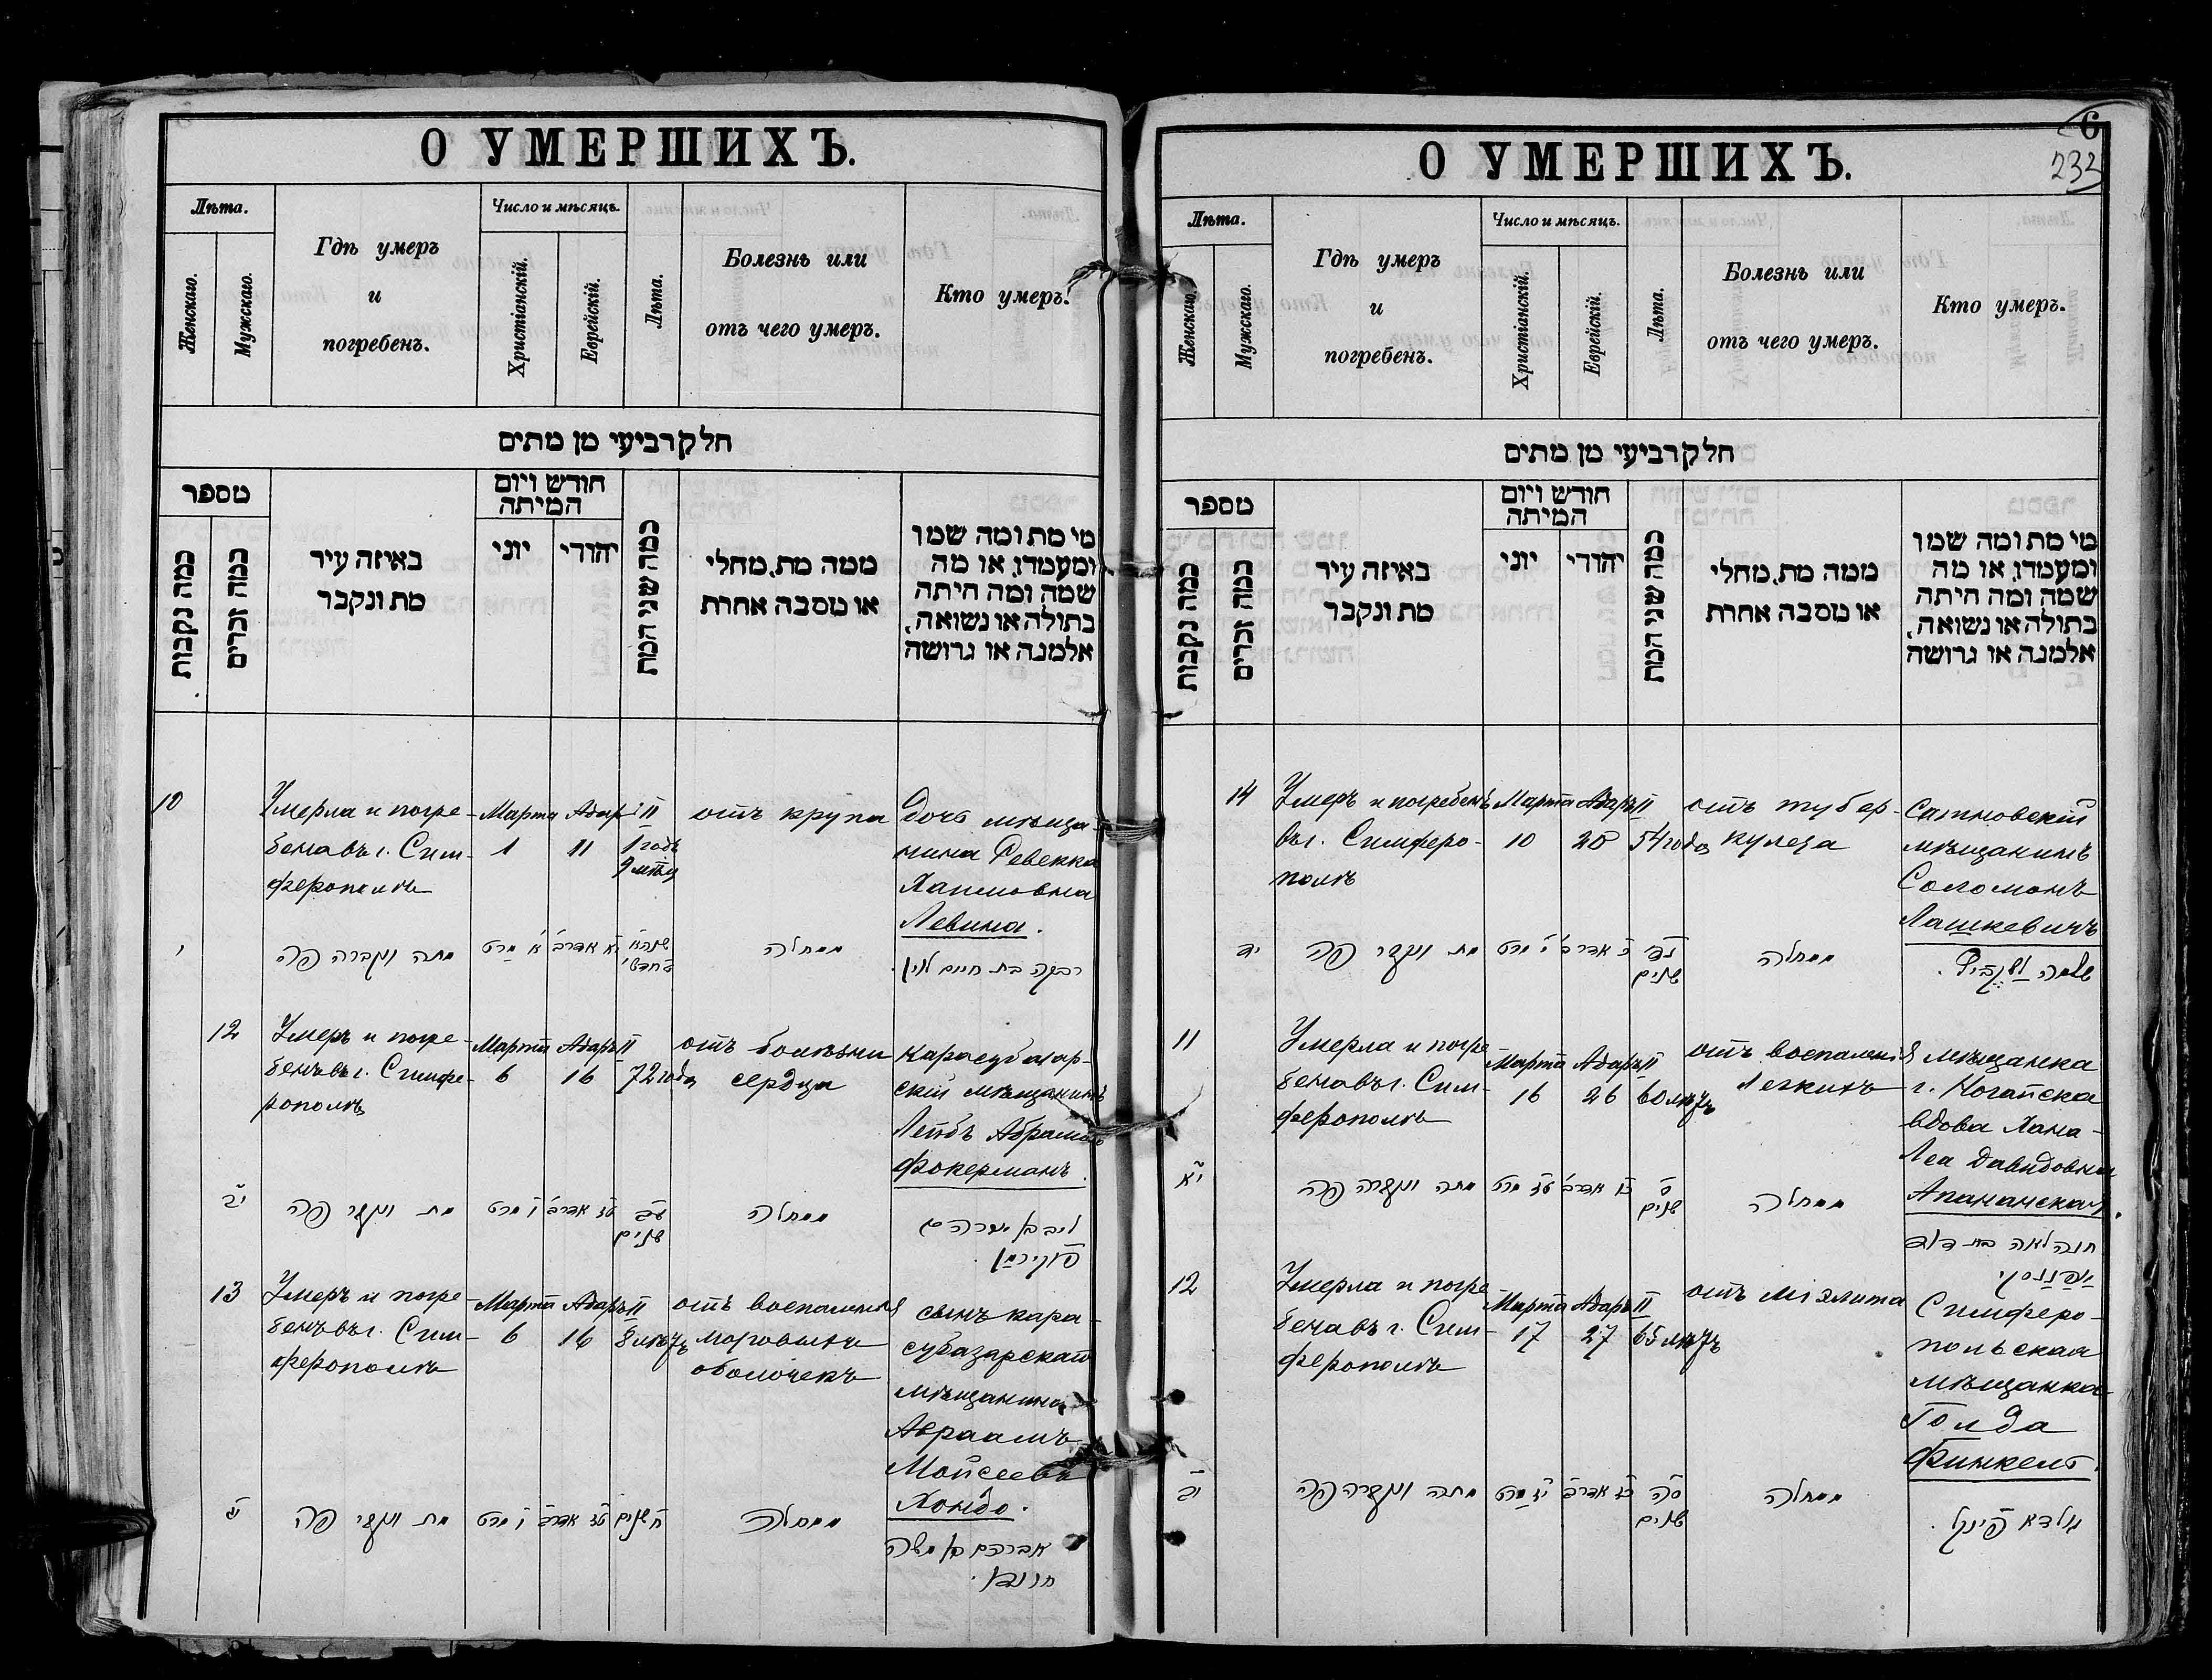 О УМЕРШИХЪ.
Лѣта.
Женскаго.
Мужскаго.
Гдѣ умеръ
и
погребенъ.
Число и мѣсяцъ.
Христіанскій.
Еврейскій.
Лѣта.
Болезнь или
отъ чего умеръ.
Кто умеръ.
חלק רביעי מן מתים
מספר
כמה נקבות
כמה זכרים
באיזה עיר
מת ונקבר
חודש ויום
המיתה
יוני
יהודי
כמה שני המת
ממה מת, מחלי
או מסבה אחרת
מי מת ומה שמו
ומעמדו, או מה
שמה ומה היתה
בתולה או נשואה,
אלמנה או גרושה
10
Умерла и погре-
бена въ г. Сим-
ферополѣ
Марта
1
Адаръ II
11
1 годъ
9 мѣц
отъ крупа
Дочь мѣща-
нина Ревекка
Хаимовна
Левина.
י
מתה ונקברה פה
א מרט
יא אדר ב
ממחלה
רבקה בת חיים לוין.
12
Умеръ и погре-
бенъ въ г. Симфе-
рополѣ
Марта
6
Адаръ II
16
72 года
отъ болѣзни
сердца
Карасубазар-
скій мѣщанинъ
Лейбъ Абрамовъ
Фокерманъ.
יב
מת ונקבר פה
ו מרט
טז אדר ב
עב
שנים
ממחלה
ליב בן אברהם
פוקירמן.
13
Умеръ и погре-
бенъ въ г. Сим-
ферополѣ
Марта
6
Адаръ II
16
8 лѣтъ
отъ воспаленія
мозговыхъ
оболочекъ
сынъ кара-
субазарскаго
мѣщанина
Авраамъ
Мойсеевъ
Хондо.
יג
מת ונקבר פה
ו מרט
טז אדר ב
ח שנים
ממחלה
אברהם בן משה
О УМЕРШИХЪ.
6
232
Лѣта.
Женскаго.
Мужскаго.
Гдѣ умеръ
и
погребенъ.
Число и мѣсяцъ.
Христіанскій.
Еврейскій.
Лѣта.
Болезнь или
отъ чего умеръ.
Кто умеръ.
חלק רביעי מן מתים
מספר
כמה נקבות
כמה זכרים
באיזה עיר
מת ונקבר
חודש ויום
המיתה
יוני
יהודי
כמה שני המת
ממה מת, מחלי
או מסבה אחרת
מי מת ומה שמו
ומעמדו, או מה
שמה ומה היתה
בתולה או נשואה,
אלמנה או גרושה
14
Умеръ и погребенъ
въ г. Симферо-
полѣ
Марта
10
Адаръ II
20
54 года
отъ тубер-
кулеза
Сатновскій
мѣщанинъ
Соломонъ
Лашкевичъ
יד
מת ונקבר פה
י מרט
כ אדר ב
נד
שנים
ממחלה
שלמה
11
Умерла и погре
бена въ г. Сим-
ферополѣ
Марта
16
Адаръ II
26
60 лѣтъ
отъ воспаленія
легкихъ
мѣщанка
г. Ногайска
вдова Хана-
Леа Давидовна
Апананская.
יא
מתה ונקברה פה
טז מרט
כו אדר ב
ס
שנים
ממחלה
חנה לאה בת דוד
12
Умерла и погре
бена въ г. Сим-
ферополѣ
Марта
17
Адаръ II
27
65 лѣтъ
отъ міэлита
Симферо-
польская
мѣщанка
Голда
Финкель.
יב
מתה ונקברה פה
יז מרט
כז אדר ב
סה
שנים
ממחלה
גולדא פינקל.